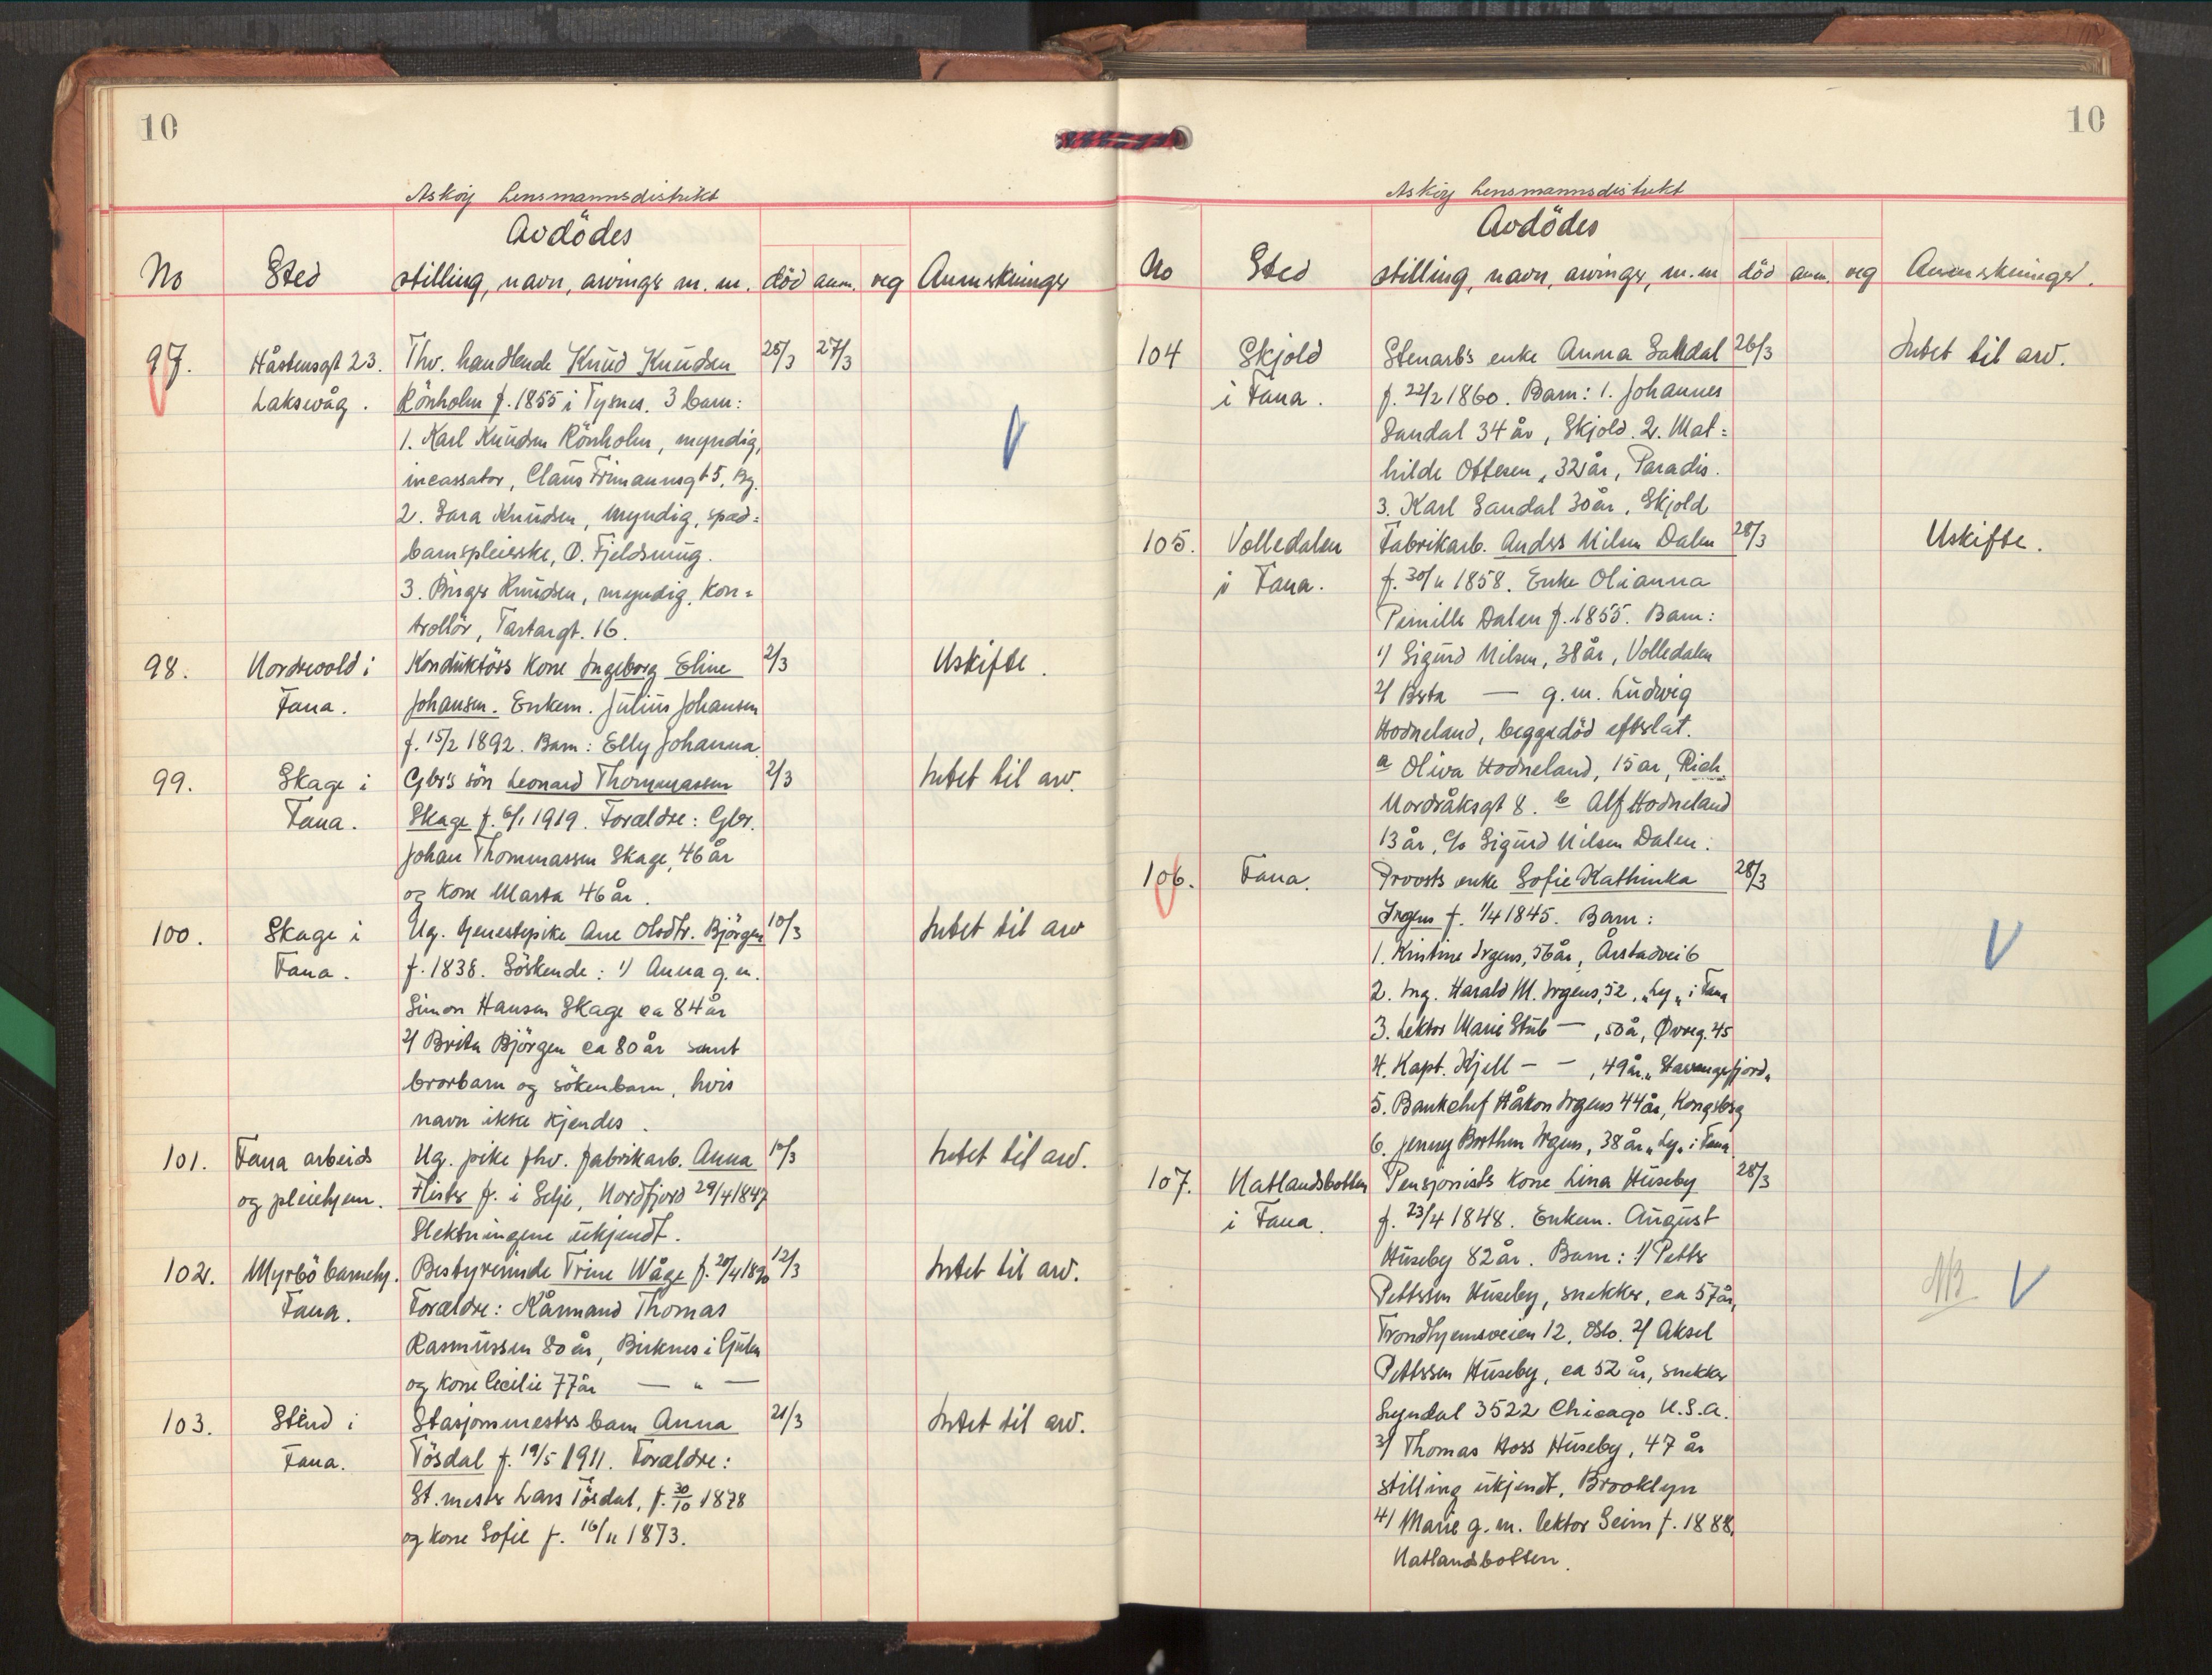 10
Askøy Lensmannsdistrikt
Avdödes
No Sted stilling, navn, arvinger m. m. död anm. reg Anmerkninger
97. Håsteinsgt 23. Thv. handlende Knud Knudsen 25/3 27/3
Laksevåg. Rönholm f. 1855 i Tysnes. 3 barn:
1. Karl Knudsen Rönholm, myndig,
incassator, Claus Frimannsgt 5, Bg.
2. Sara Knudsen, myndig, spæd=
barnspleierske, O. Fjeldsmug.
3. Birger Knudsen, myndig, kon=
trollör, Tartargt. 16.
98. Nordrevold i Konduktörs kone Ingeborg Eline 2/3 Uskifte.
Fana. Johansen. Enkem. Julius Johansen
f. 15/2 1892. Barn: Elly Johanna
99. Skage i Gbr's sön Leonard Thommassen 2/3 Intet til arv.
Fana. Skage f. 6/1 1919. Forældre: Gbr.
Johan Thommassen Skage, 46 år
og kone Marta 46 år.
100. Skage i Ug. tjenestepike Ane Olsdtr. Björgen 10/3 Intet til arv
Fana. f. 1838. Söskende: 1) Anna g. m.
Simon Hansen Skage ca 84 år
2) Brita Björgen ca 80 år samt
brorbarn og sökenbarn, hvis
navn ikke kjendes.
101. Fana arbeids Ug. pike fhv. fabrikarb. Anna 10/3 Intet til arv.
og pleiehjem. Flister f. i Selje, Nordfjord 29/4 1847
Slektningene ukjendt.
102. Myrbö barnehj. Bestyrerinde Trine Våge f. 20/4 1890 12/3 Intet til arv.
Fana. Forældre: Kårmand Thomas
Rasmussen 80 år, Birknes i Gulen
og kone Cecilie 77 år — " —
103. Stend i Stasjonsmesters barn Anna 21/3 Intet til arv.
Fana. Tösdal f. 19/5 1911. Forældre:
St.mester Lars Tösdal, f. 30/10 1878
og kone Sofie f. 16/11 1873.
10
Askøy Lensmannsdistrikt
Avdödes
No Sted stilling, navn, arvinger, m. m död anm. reg Anmerkninger.
104 Skjold Stenarb's enke Anna Sandal 26/3 Intet til arv.
i Fana. f. 22/2 1860. Barn: 1. Johannes
Sandal 34 år, Skjold. 2. Mat=
hilde Ottesen, 32 år, Paradis.
3. Karl Sandal 30 år, Skjold
105. Volledalen Fabrikarb. Anders Nilsen Dalen 28/3 Uskifte.
i Fana. f. 30/11 1858. Enke Olianna
Pernille Dalen f. 1855. Barn:
1) Sigurd Nilsen, 38 år, Volledalen
2) Berta — g. m. Ludvig
Hodneland, begge död efterlat.
a Oliva Hodneland, 15 år, Rich.
Nordråksgt 8. b Alf Hodneland
13 år, c/o Sigurd Nilsen Dalen.
106. Fana. Provsts enke Sofie Kathinka 28/3
Irgens f. 1/4 1845. Barn:
1. Kristine Irgens, 56 år, Årstadvei 6
2. Ing. Harald M. Irgens, 52, "Ly" i Fana
3. Lektor Marie Stub — , 50 å, Øvreg. 45
4. Kapt. Kjell — — , 49 år, "Stavangerfjord"
5. Bankchef Håkon Irgens 44 år, Kongsberg
6. Jenny Brothen Irgens, 38 år "Ly" i Fana
107. Natlandsbotten Pensjonists kone Lina Huseby 28/3
i Fana. f. 23/4 1848. Enkem. August
Huseby 82 år. Barn: 1) Petter
Pettersen Huseby, snekker, ca 57 år,
Trondhjemsveien 12, Oslo. 2) Aksel NB
Pettersen Huseby, ca 52 år, snekker
Lyndal 3522 Chicago U.S.A.
3) Thomas Hoss Huseby, 47 år
stilling ukjendt, Brooklyn
4) Marie g. m. lektor Seim f. 1888,
Natlandsbotten.